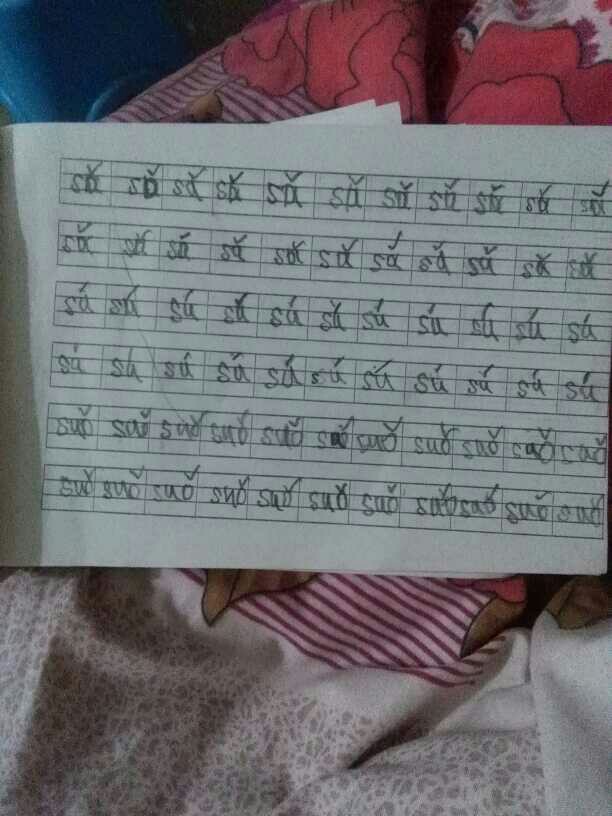 sǎ sǎ sǎ sǎ sǎ sǎ sǎ sǎ sǎ sǎ sǎ
sǎ sǎ sǎ sǎ sǎ sǎ sǎ sǎ sǎ sǎ sǎ
sú sú sú sú sú sú sú sú sú sú sú
sú sú sú sú sú sú sú sú sú sú sú
suǒ saǒ suǒ suǒ suǒ saǒ suǒ suǒ suǒ saǒ saǒ
suǒ suǒ suǒ suǒ suǒ suǒ suǒ saǒ saǒ suǒ suǒ